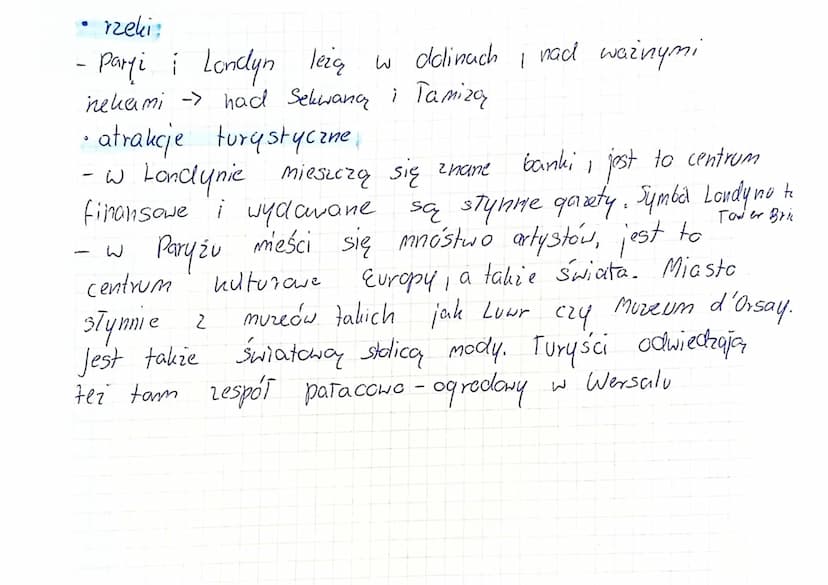 • rzeki:
- Paryż i Londyn leżą w dolinach, nad ważnymi
rzekami -> nad Sekwaną i Tamizą
• atrakcje turystyczne
- w Londynie mieszczą się znane banki, jest to centrum
finansowe i wydawane są słynne gazety. Symbol Londynu t
Tower Bri
- w Paryżu mieści się mnóstwo artystów, jest to
centrum kulturowe Europy, a także świata. Miasto
słynnie z muzeów takich jak Luwr czy Muzeum d'Orsay.
Jest także światową stolicą mody. Turyści odwiedzają
też tam zespół pałacowo-ogrodowy w Wersalu